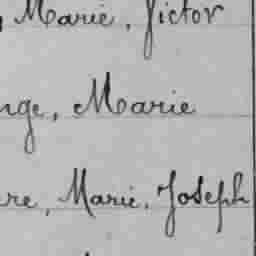 , Marie, Victor
nge, Marie
re, Marie, Joseph